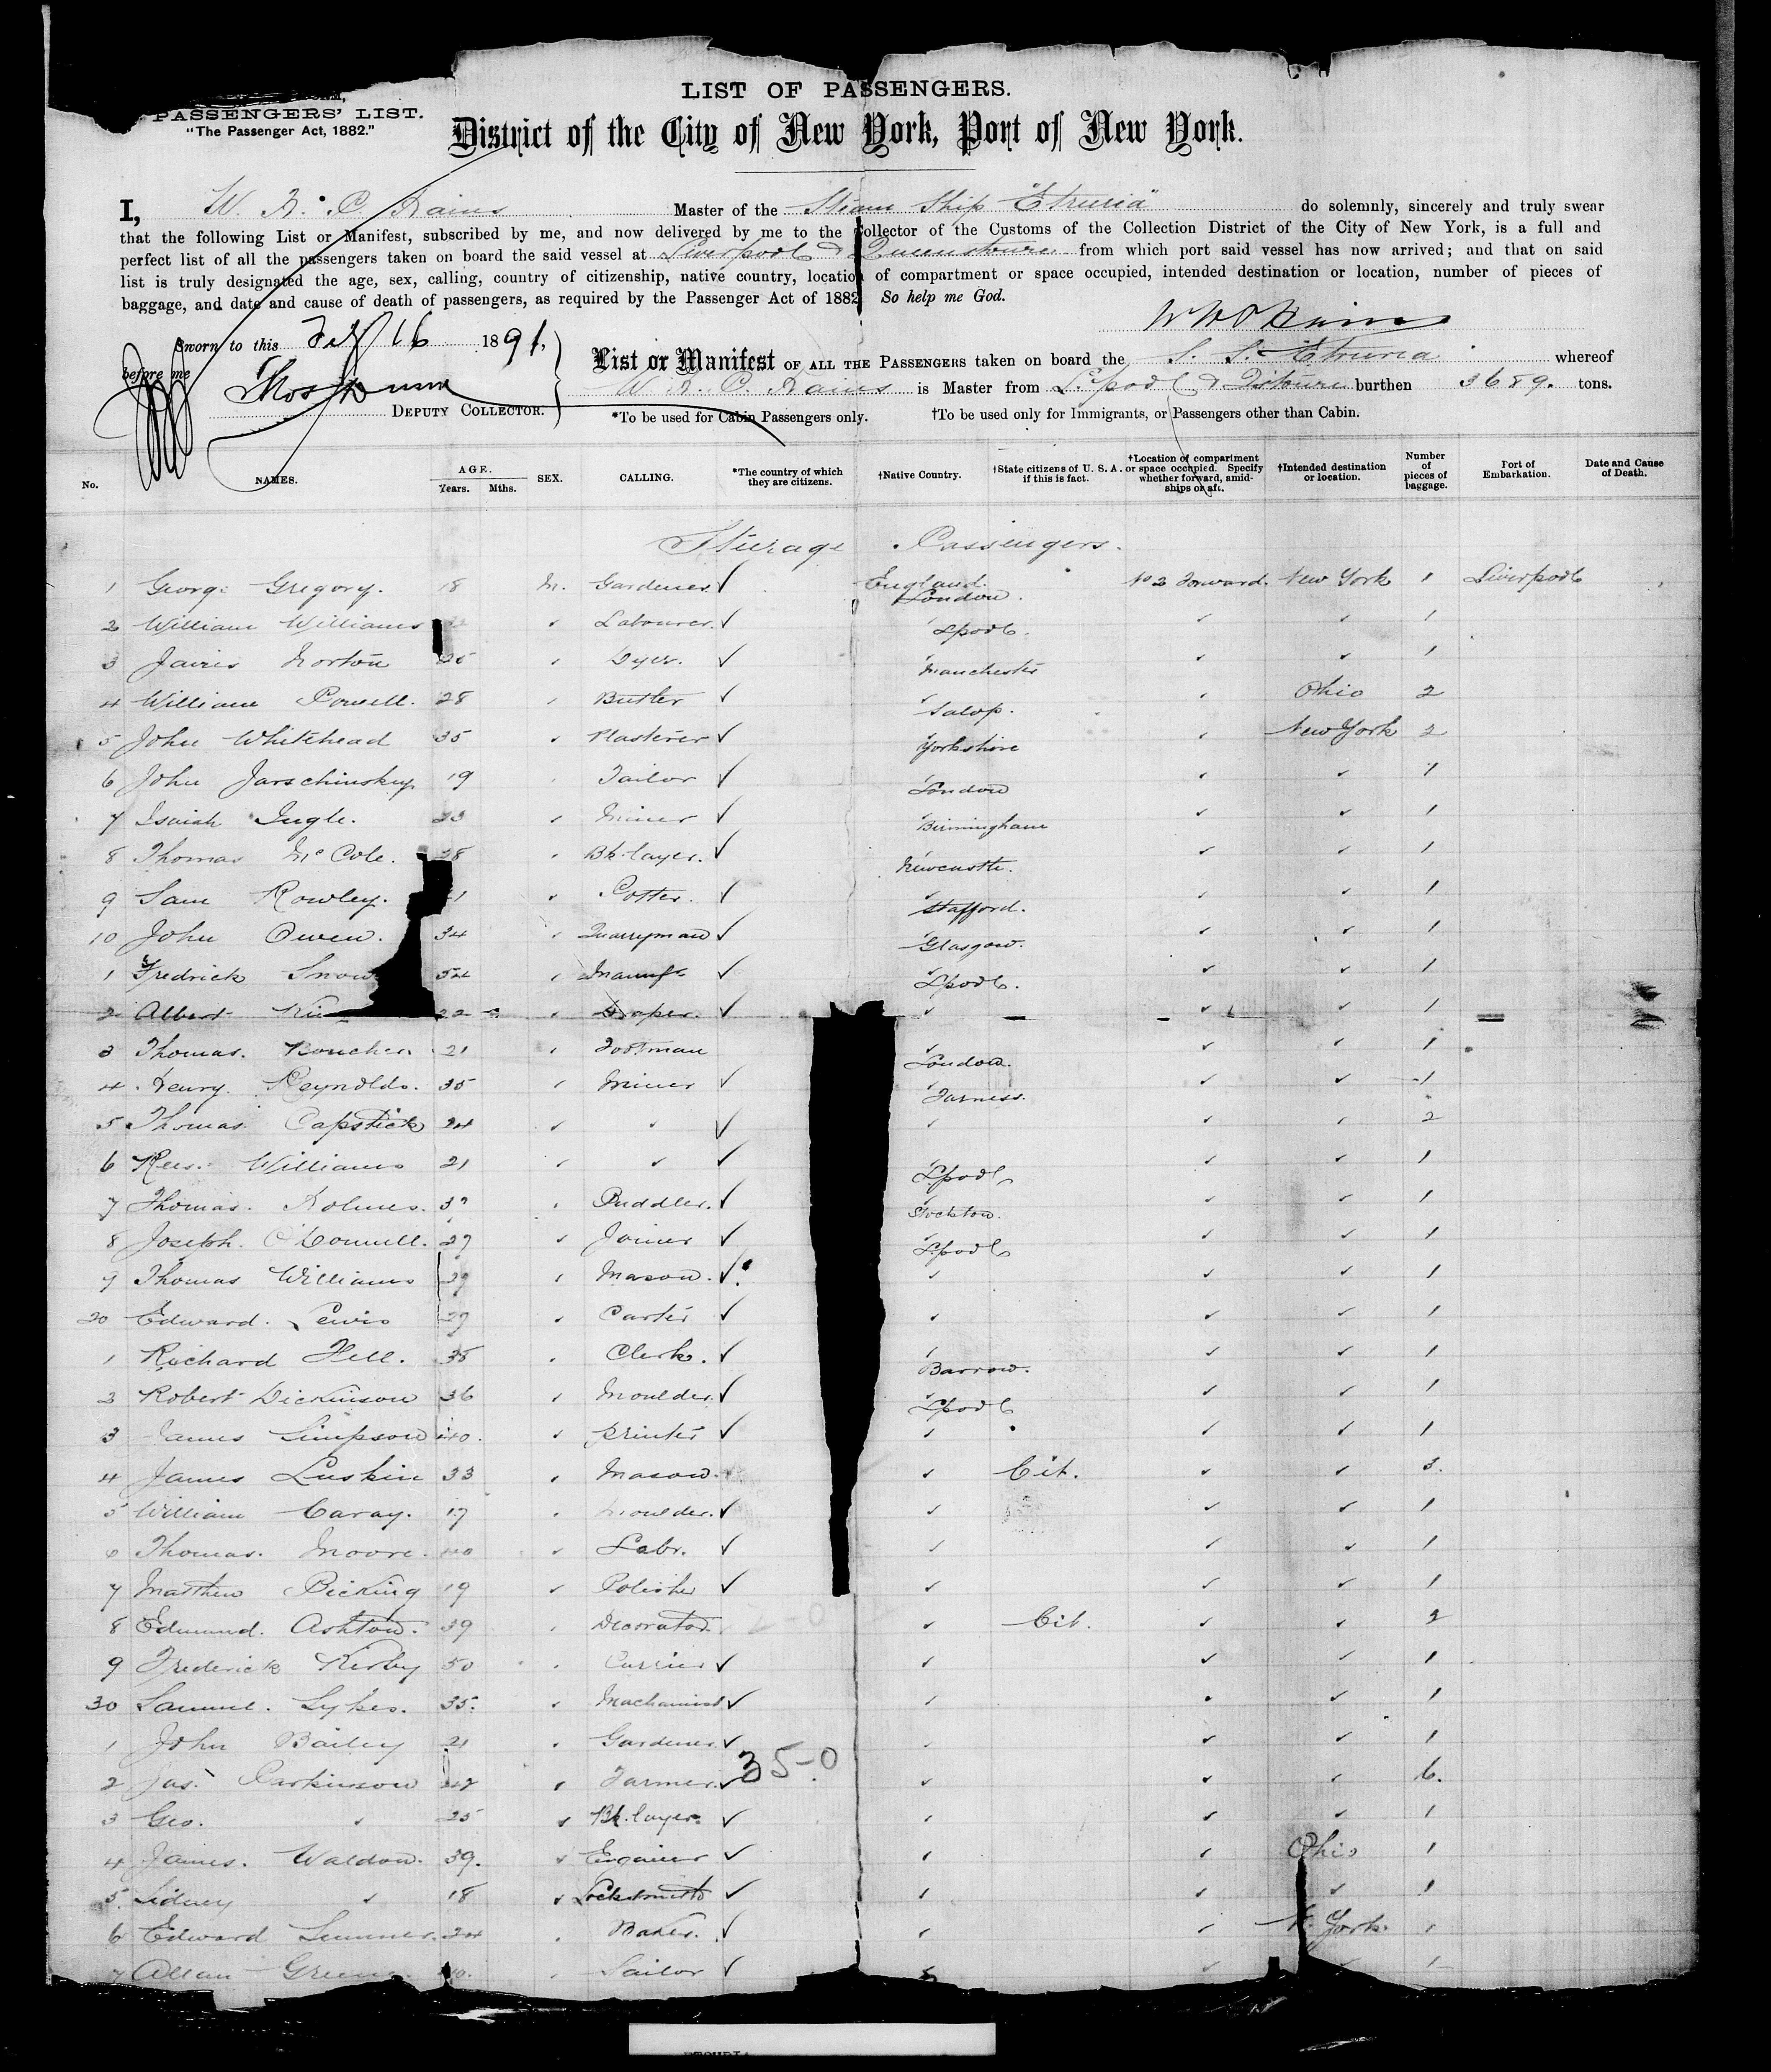 PASSENGERS' LIST.
"The Passenger Act, 1882."
LIST OF PASSENGERS.
District of the City of New York, Port of New York.
I, W. H. P. Hains Master of the Steam Ship "Etruria" do solemnly, sincerely and truly swear
that the following List or Manifest, subscribed by me, and now delivered by me to the Collector of the Customs of the Collection District of the City of New York, is a full and
perfect list of all the passengers taken on board the said vessel at Liverpool & Queenstown from which port said vessel has now arrived; and that on said
list is truly designated the age, sex, calling, country of citizenship, native country, location of compartment or space occupied, intended destination or location, number of pieces of
baggage, and date and cause of death of passengers, as required by the Passenger Act of 1882 So help me God.
W H P Hains
Sworn to this Feby 16 1891,
before me
DEPUTY COLLECTOR.
List or Manifest OF ALL THE PASSENGERS taken on board the S. S. Etruria whereof
W. H. P. Hains is Master from L'pool & Q'town burthen 3689. tons.
*To be used for Cabin Passengers only. †To be used only for Immigrants, or Passengers other than Cabin.
No. NAMES. AGE. Years. Mths. SEX. CALLING. *The country of which they are citizens. †Native Country. †State citizens of U. S. A. if this is fact. †Location of compartment or space occupied. Specify whether forward, amidships or aft. †Intended destination or location. Number of pieces of baggage. Port of Embarkation. Date and Cause of Death.
Steerage Passengers.
1 George Gregory. 18 M. Gardener ✓ England London. No 2 Forward. New York 1 Liverpool
2 William Williams ✓ Labourer. ✓ ✓ Lpool. ✓ ✓ 1
3 James Norton 25 ✓ Dyer. ✓ ✓ Manchester ✓ ✓ 1
4 William Powell. 28 ✓ Butler ✓ ✓ Salop. ✓ Ohio 2
5 John Whitehead 35 ✓ Plasterer ✓ ✓ Yorkshire ✓ New York 2
6 John Jarschinsky 19 ✓ Tailor ✓ ✓ London ✓ ✓ 1
7 Isaiah Ingle. 23 ✓ Miner ✓ ✓ Birmingham ✓ ✓ 1
8 Thomas McCole. 28 ✓ Bk. layer. ✓ ✓ Newcastle. ✓ ✓ 1
9 Sam Rowley. ✓ Potter. ✓ ✓ Stafford. ✓ ✓ 1
10 John Owen. 34 ✓ Quarryman ✓ ✓ Glasgow. ✓ ✓ 1
1 Fredrick Snow ✓ Manufr ✓ ✓ Lpool. ✓ ✓ 1
2 Albert 22 ✓ Draper. ✓ ✓ ✓ ✓ 1
3 Thomas. 21 ✓ Footman ✓ London. ✓ ✓ 1
4 Henry. Reynolds. 35 ✓ Miner ✓ ✓ Furness. ✓ ✓ 1
5 Thomas Capstick 24 ✓ ✓ ✓ ✓ ✓ ✓ 2
6 Rees. Williams 21 ✓ ✓ ✓ ✓ Lpool ✓ ✓ 1
7 Thomas. Holmes. ✓ Puddler. ✓ ✓ Stockton. ✓ ✓ 1
8 Joseph. O'Donnell. 27 ✓ Joiner ✓ ✓ Lpool ✓ ✓ 1
9 Thomas Williams ✓ Mason. ✓ ✓ ✓ ✓ 1
20 Edward. Lewis ✓ Carter ✓ ✓ ✓ ✓ 1
1 Richard Hill. 38 ✓ Clerk. ✓ ✓ Barrow. ✓ ✓ 1
2 Robert Dickinson 36 ✓ Moulder. ✓ ✓ Lpool ✓ ✓ 1
3 James Simpson 40. ✓ Printer ✓ ✓ ✓ ✓ 1
4 James Luskin 33 ✓ Mason. ✓ Cit. ✓ ✓ 3.
5 William Caray. 17 ✓ Moulder. ✓ ✓ ✓ ✓ 1
6 Thomas. Moore. 40 ✓ Labr. ✓ ✓ ✓ ✓ 1
7 Matthew Bicking 19 ✓ Polisher ✓ ✓ ✓ ✓ 1
8 Edmund. Ashton. 39 ✓ Decorator. ✓ Cit. ✓ ✓ 2
9 Frederick Kirby 50 ✓ Currier ✓ ✓ ✓ ✓ 1
30 Samuel. Sykes. 35. ✓ Machinist ✓ ✓ ✓ ✓ 1
1 John Bailey 21 ✓ Gardener. ✓ ✓ ✓ ✓ 1
2 Jas. Parkinson ✓ Farmer. ✓ 35-0 ✓ ✓ ✓ 6.
3 Geo. ✓ 25 ✓ Bk. layer. ✓ ✓ ✓ ✓ 1
4 James. Waldon. 39. ✓ Engineer ✓ ✓ ✓ Ohio 1
5 Sidney ✓ 18 ✓ Locksmith ✓ ✓ ✓ ✓ 1
6 Edward Sumner. 24 ✓ Baker. ✓ ✓ ✓ N. York. 1
7 Allan Greene. ✓ Sailor ✓ ✓ ✓ ✓ 1